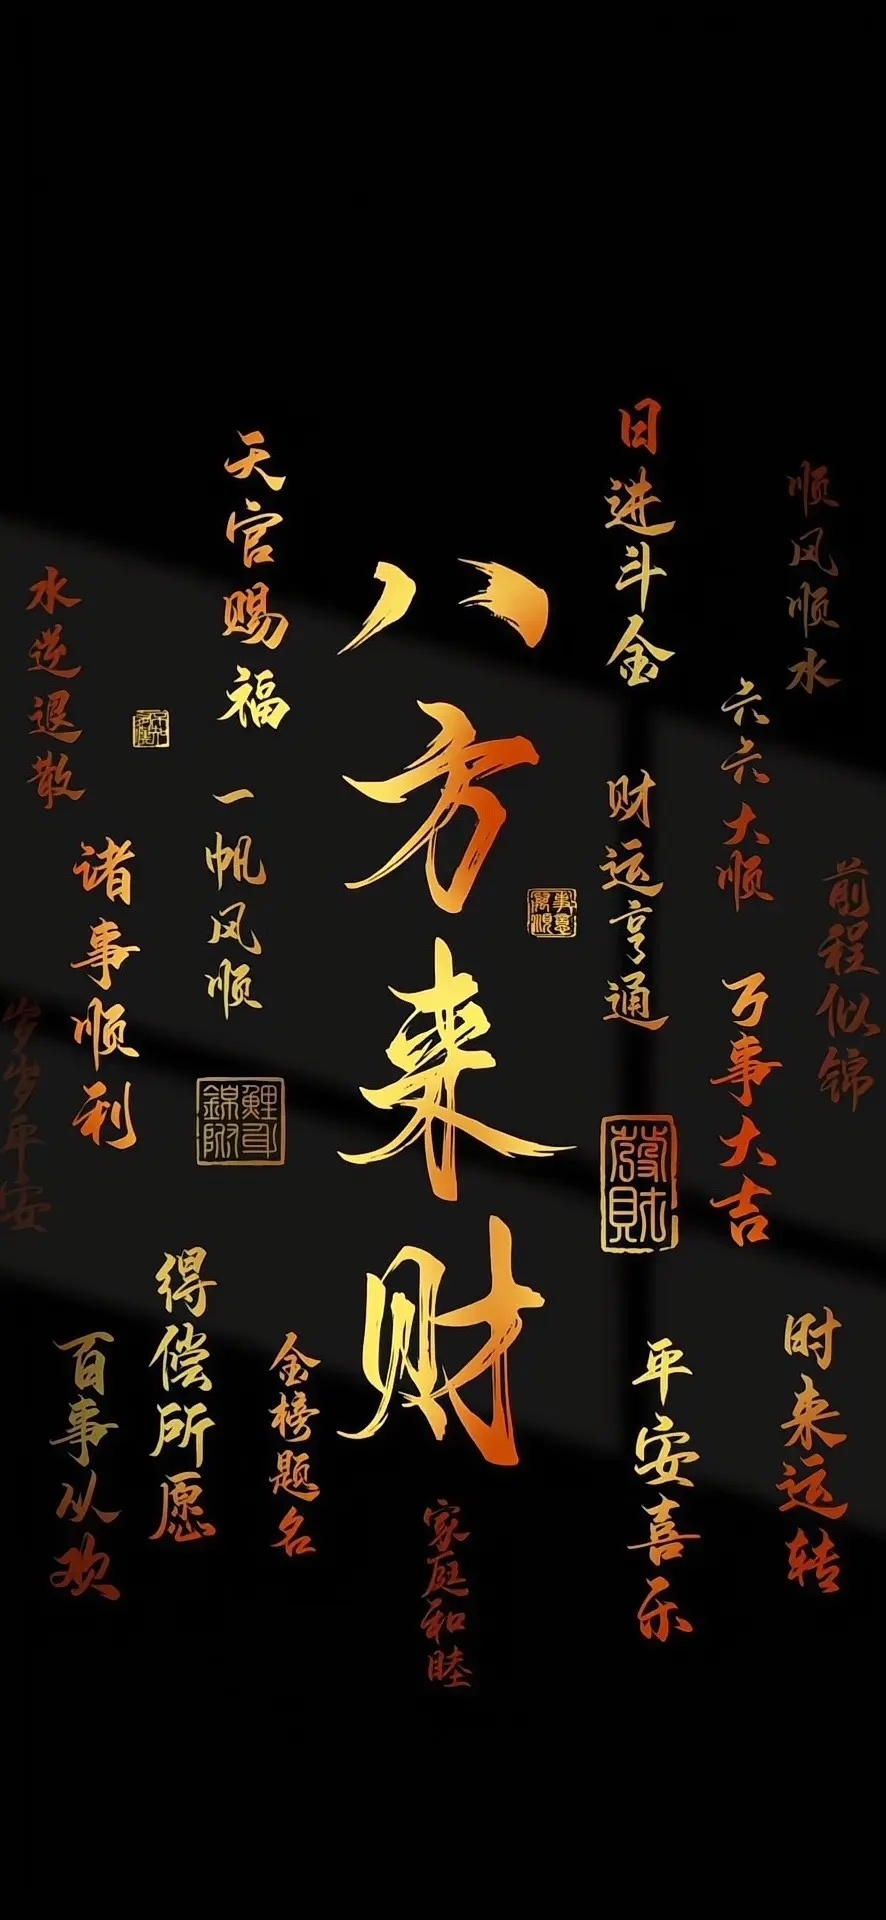 八方来财
天官赐福
日进斗金
顺风顺水
水逆退散
六六大顺
一帆风顺
财运亨通
诸事顺利
前程似锦
万事大吉
岁岁平安
锦鲤附身
發財
得偿所愿
百事从欢
金榜题名
平安喜乐
时来运转
家庭和睦